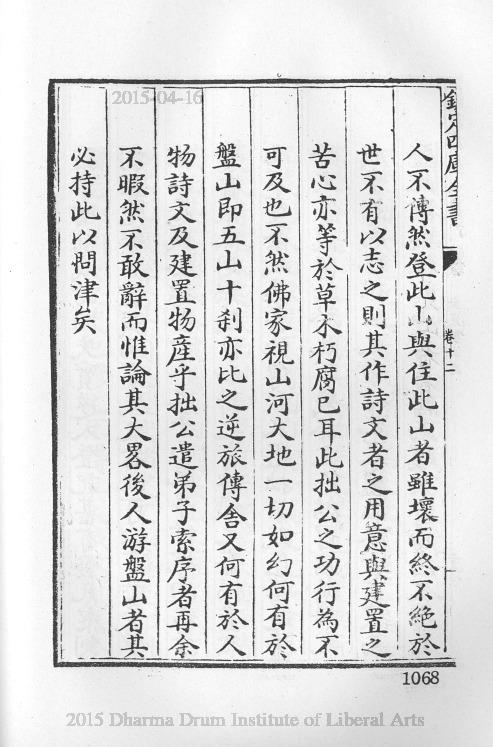 2015-04-16
欽定四庫全書
卷十二
人不傳然登此山與住此山者雖壞而終不絶於
世不有以志之則其作詩文者之用意與建置之
苦心亦等於草木朽腐已耳此拙公之功行為不
可及也不然佛家視山河大地一切如幻何有於
盤山即五山十刹亦比之逆旅傳舍又何有於人
物詩文及建置物産乎拙公遣弟子索序者再余
不暇然不敢辭而惟論其大畧後人游盤山者其
必持此以問津矣
1068
2015 Dharma Drum Institute of Liberal Arts